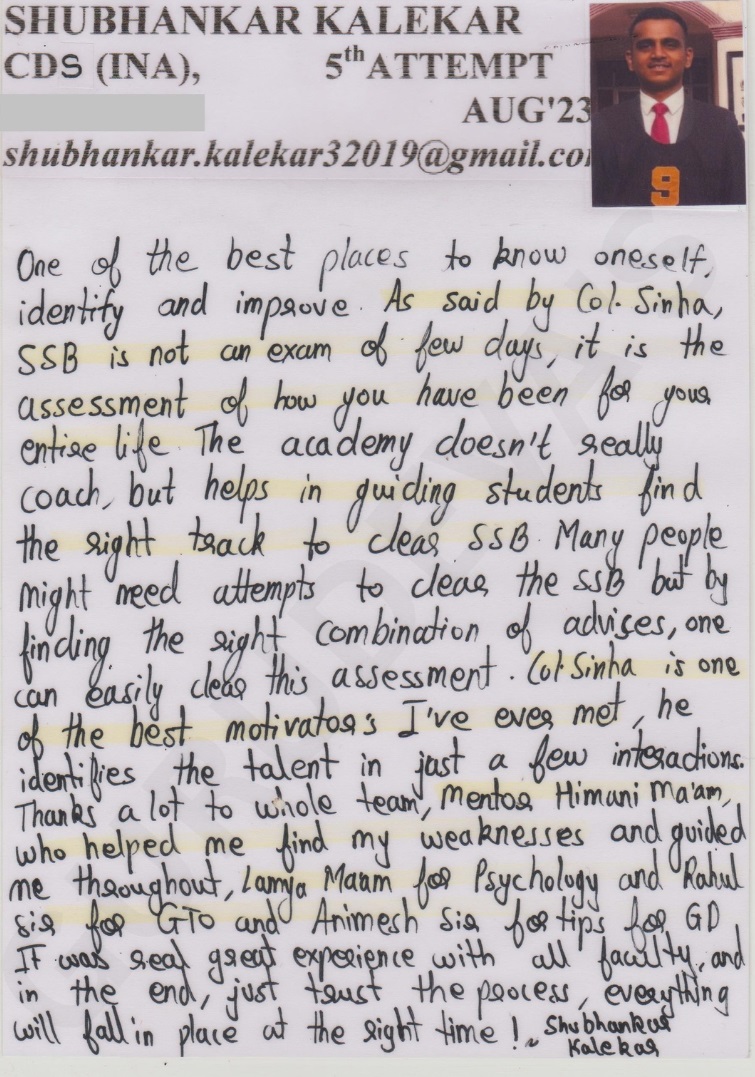 SHUBHANKAR KALEKAR
CDS (INA), 5th ATTEMPT
AUG'23
shubhankar.kalekar32019@gmail.co
9
One of the best places to know oneself,
identify and improve. As said by Col. Sinha,
SSB is not an exam of few days, it is the
assessment of how you have been for your
entire life. The academy doesn't really
coach, but helps in guiding students find
the right track to clear SSB. Many people
might need attempts to clear the SSB but by
finding the right combination of advises, one
can easily clear this assessment. Col Sinha is one
of the best motivators I've ever met, he
identifies the talent in just a few interactions.
Thanks a lot to whole team, Mentor Himani Ma'am,
who helped me find my weaknesses and guided
me throughout, Lamya Maam for Psychology and Rahul
sir for GTO and Animesh Sir for tips for GD
It was real great experience with all faculty, and
in the end, just trust the process, everything
will fall in place at the right time! ~ Shubhankar
Kalekar